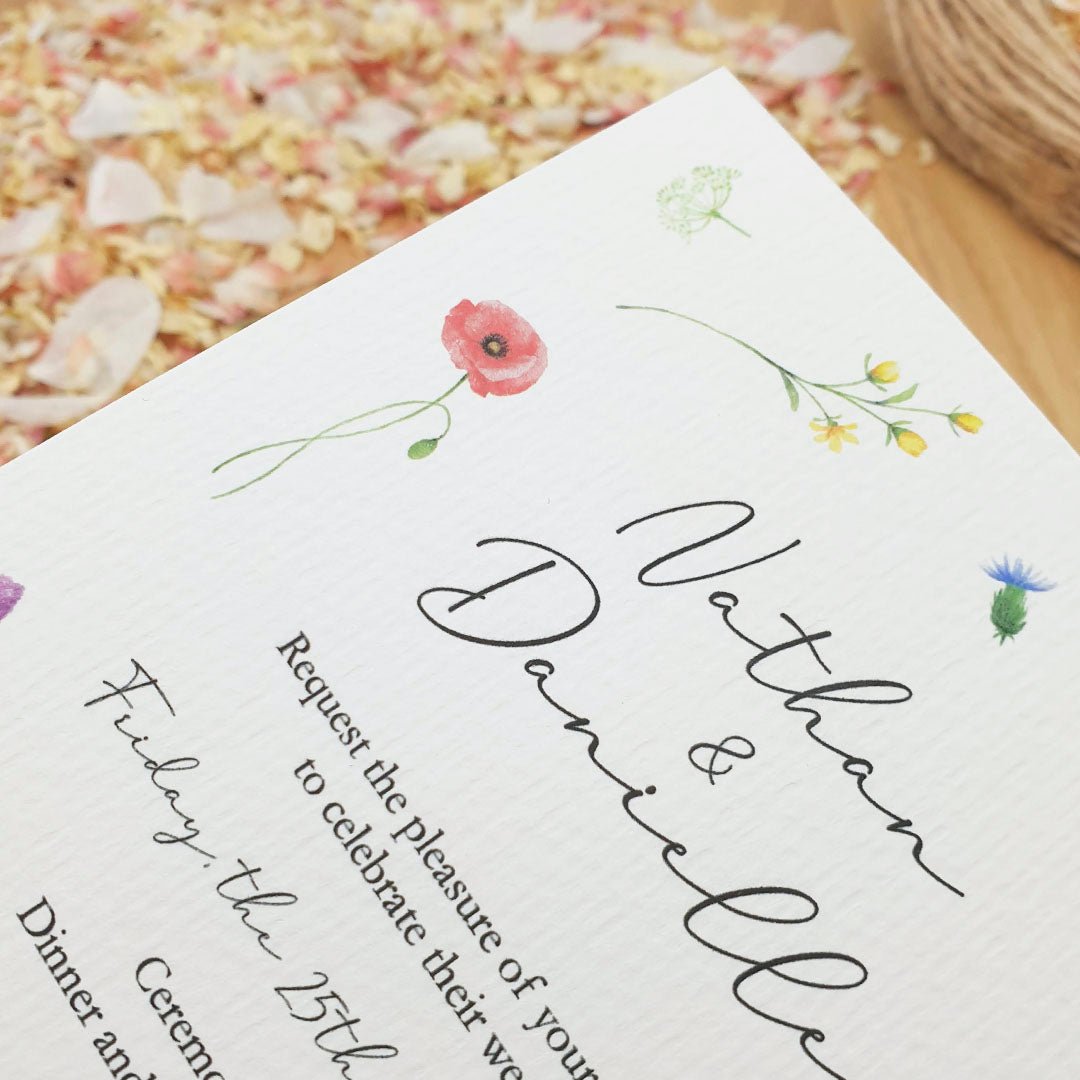 Nathan
&
Danielle
Request the pleasure of your
to celebrate their we
Friday, the 25th
Ceremo
Dinner and